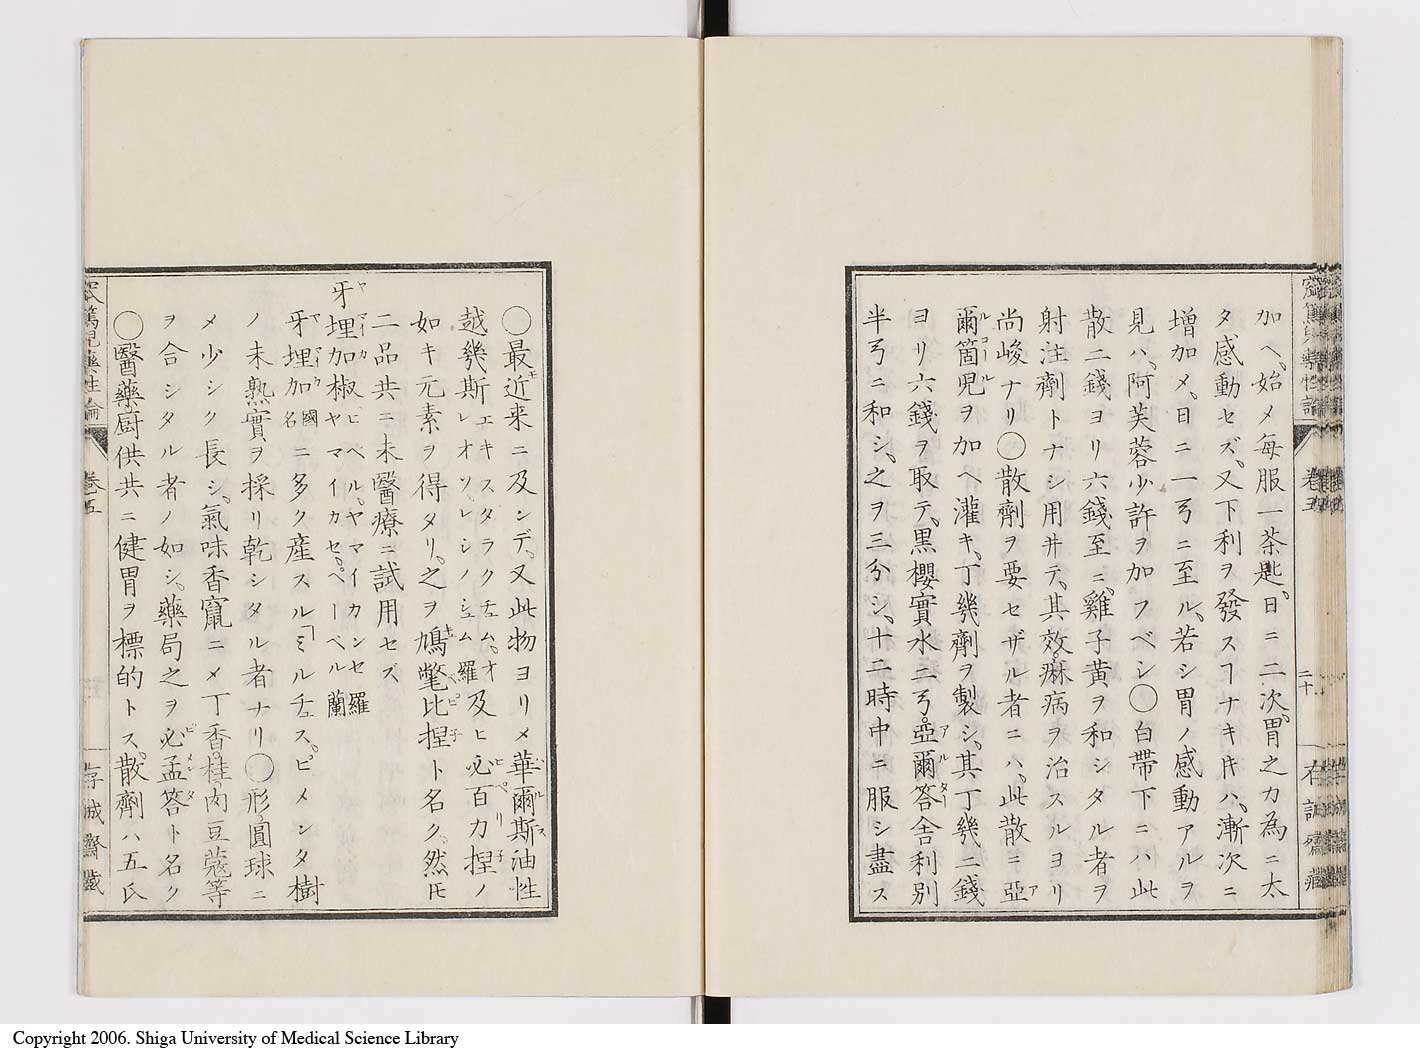 加ヘ、始メ毎服一茶匙、日ニ二次、胃之カ為ニ太
タ感動セズ、又下利ヲ發スヿナキキハ、漸次ニ
増加メ、日ニ一弓ニ至ル、若シ胃ノ感動アルヲ
見ハ、阿芙蓉少許ヲ加フベシ〇白帯下ニハ此
散二錢ヨリ六錢至ニ、雞子黄ヲ和シタル者ヲ
射注劑トナシ用井テ、其效痳病ヲ治スルヨリ
尚峻ナリ〇散劑ヲ要セザル者ニハ、此散ニ亞
爾箇児ヲ加ヘ灌キ、丁幾劑ヲ製シ、其丁幾二錢
ヨリ六錢ヲ取テ、黒櫻實水二弓、亞爾答舎利別
半弓ニ和シ、之ヲ三分シ、十二時中ニ服シ盡ス
巻五
二十
〇最近来ニ及ンデ、又此物ヨリメ華爾斯油性
越幾斯エキスタラクチュム、オレオソ、レシノシュム羅及ヒ必百力捏ノ
如キ元素ヲ得タリ、之ヲ鳩氅比捏ト名ク、然𪜈
二品共ニ未醫療ニ試用セズ
牙埋加椒ヒヘル、ヤマイカンセ羅ヤマイカセ、ペーペル蘭
牙埋加國名ニ多ク産スル「ミルチュス、ピメンタ樹
ノ未熟實ヲ採リ乾シタル者ナリ〇形圓球ニ
メ少シク長シ、氣味香竄ニメ丁香、桂肉豆蔻等
ヲ合シタル者ノ如シ、藥局之ヲ必孟答ト名ク
〇醫藥厨供共ニ健胃ヲ標的トス、散劑ハ五氏
篤兒藥性論
巻五
Copyright 2006. Shiga University of Medical Science Library